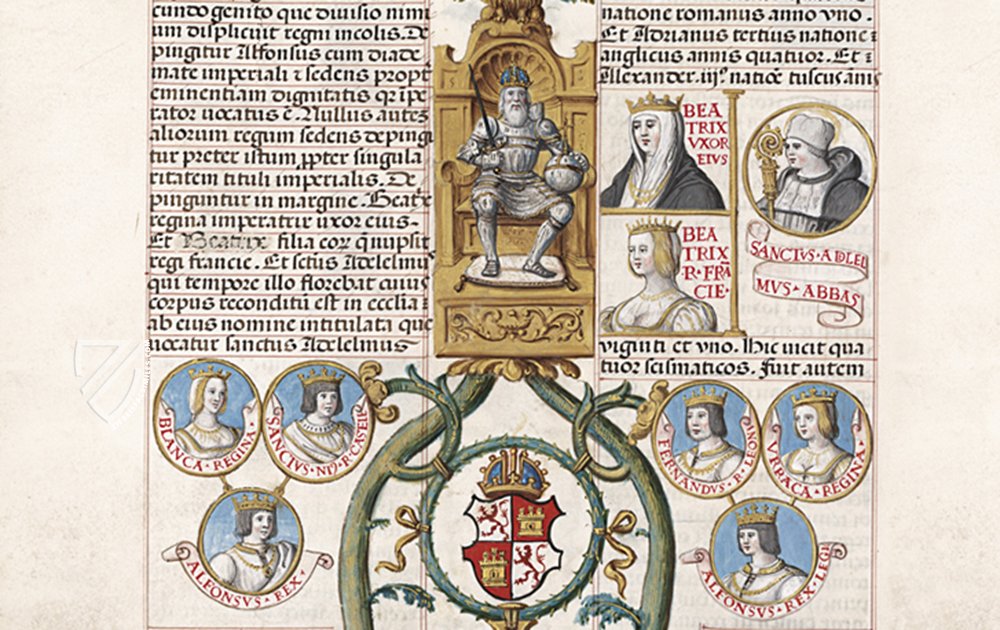 cundo genito que diuisio nimi
um displicuit regni incolis. De
pingitur Alfonsus cum diade
mate imperiali ⁊ sedens propt
eminentiam dignitatis qr ipe
rator uocatus ē. Nullus autez
aliorum regum sedens depingi
tur preter istum ꝓpter singula
ritatem tituli imperialis. De
pinguntur in margine. Beatx
regina imperatrix uxor eius.
Et Beatrix filia eorꝫ q̄ nupsit
regi francie. Et sctus Adelelmus
qui tempore illo florebat cuius
corpus reconditū est in ecclia
ab eius nomine intitulata que
uocatur sanctus Adelelmus
natione romanus anno uno.
Et Adrianus tertius natione
anglicus annis quatuor. Et
Alexander .iijs natiōe tuscus ānis
BEA
TRIX
VXOR
EIVS
BEA
TRIX
R. FRĀ
CIE.
SANCTVS. ADLEL
MVS. ABBAS
uiginti et uno. Hic uicit qua
tuor scismaticos. Fuit autem
BLANCA. REGINA.
SANCTIVS. N19. R. CASELE
ALFONSVS. REX.
FERNANDVS. R. LEONI
VRRACA. REGINA.
ALFONSVS. REX. LEGIŌ